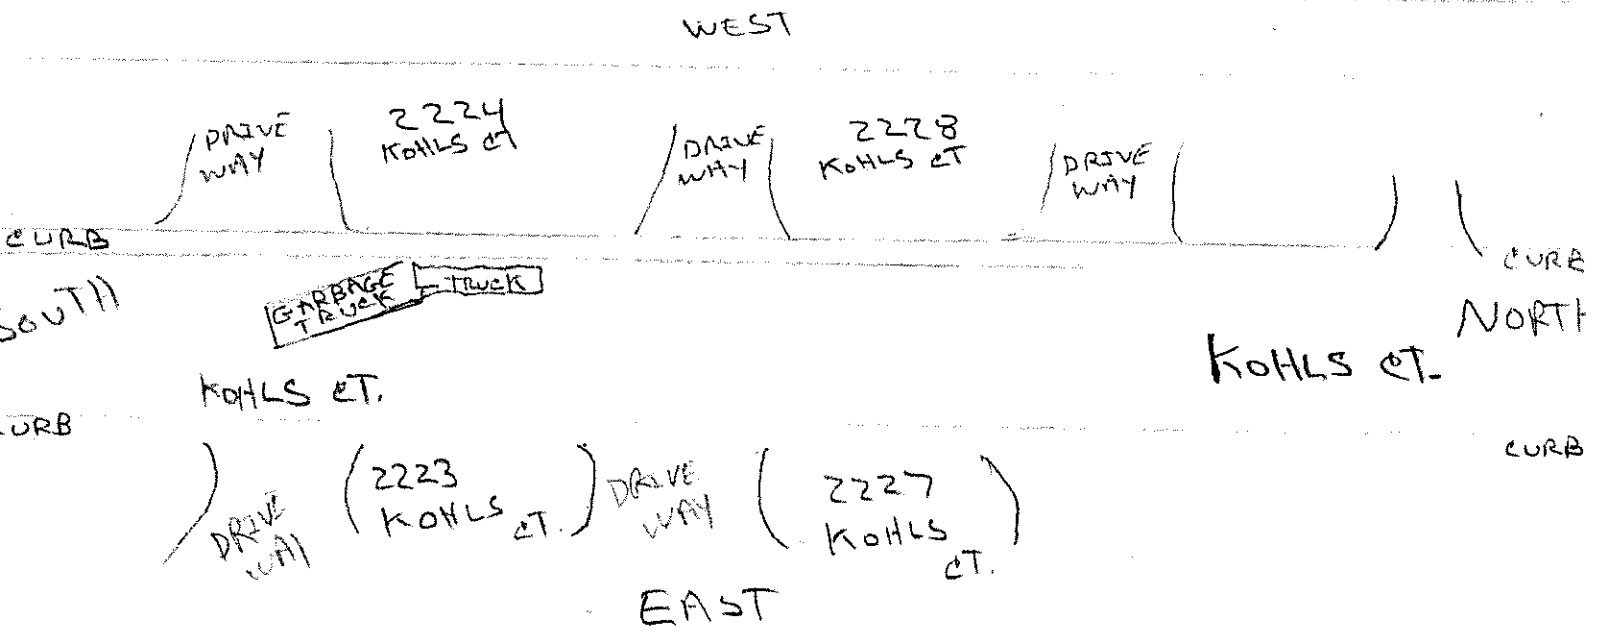 WEST
DRIVE
WAY
2224
KOHLS CT
DRIVE
WAY
2228
KOHLS CT
DRIVE
WAY
CURB
CURB
SOUTH
GARBAGE
TRUCK
TRUCK
NORTH
KOHLS CT.
KOHLS CT.
CURB
CURB
DRIVE
WAY
2223
KOHLS
CT.
DRIVE
WAY
2227
KOHLS
CT.
EAST